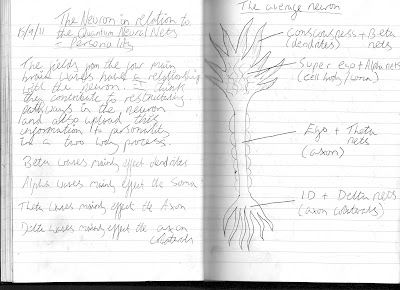 The Neuron in relation to
15/9/11 the Quantum Neural Nets
= Personality
The fields from the four main
brain waves have a relationship
with the neuron. I think
they contribute to restructuring
pathways in the neuron
and also upload this
information to personality
in a two way process.
Beta waves mainly effect dendrites
Alpha waves mainly effect the Soma
Theta waves mainly effect the Axon
Delta waves mainly effect the axon
collaterals
The average neuron
consciousness + Beta
(dendrites) nets
Super ego + Alpha nets
(cell body/soma)
Ego + Theta
nets
(axon)
ID + Delta nets
(axon collaterals)